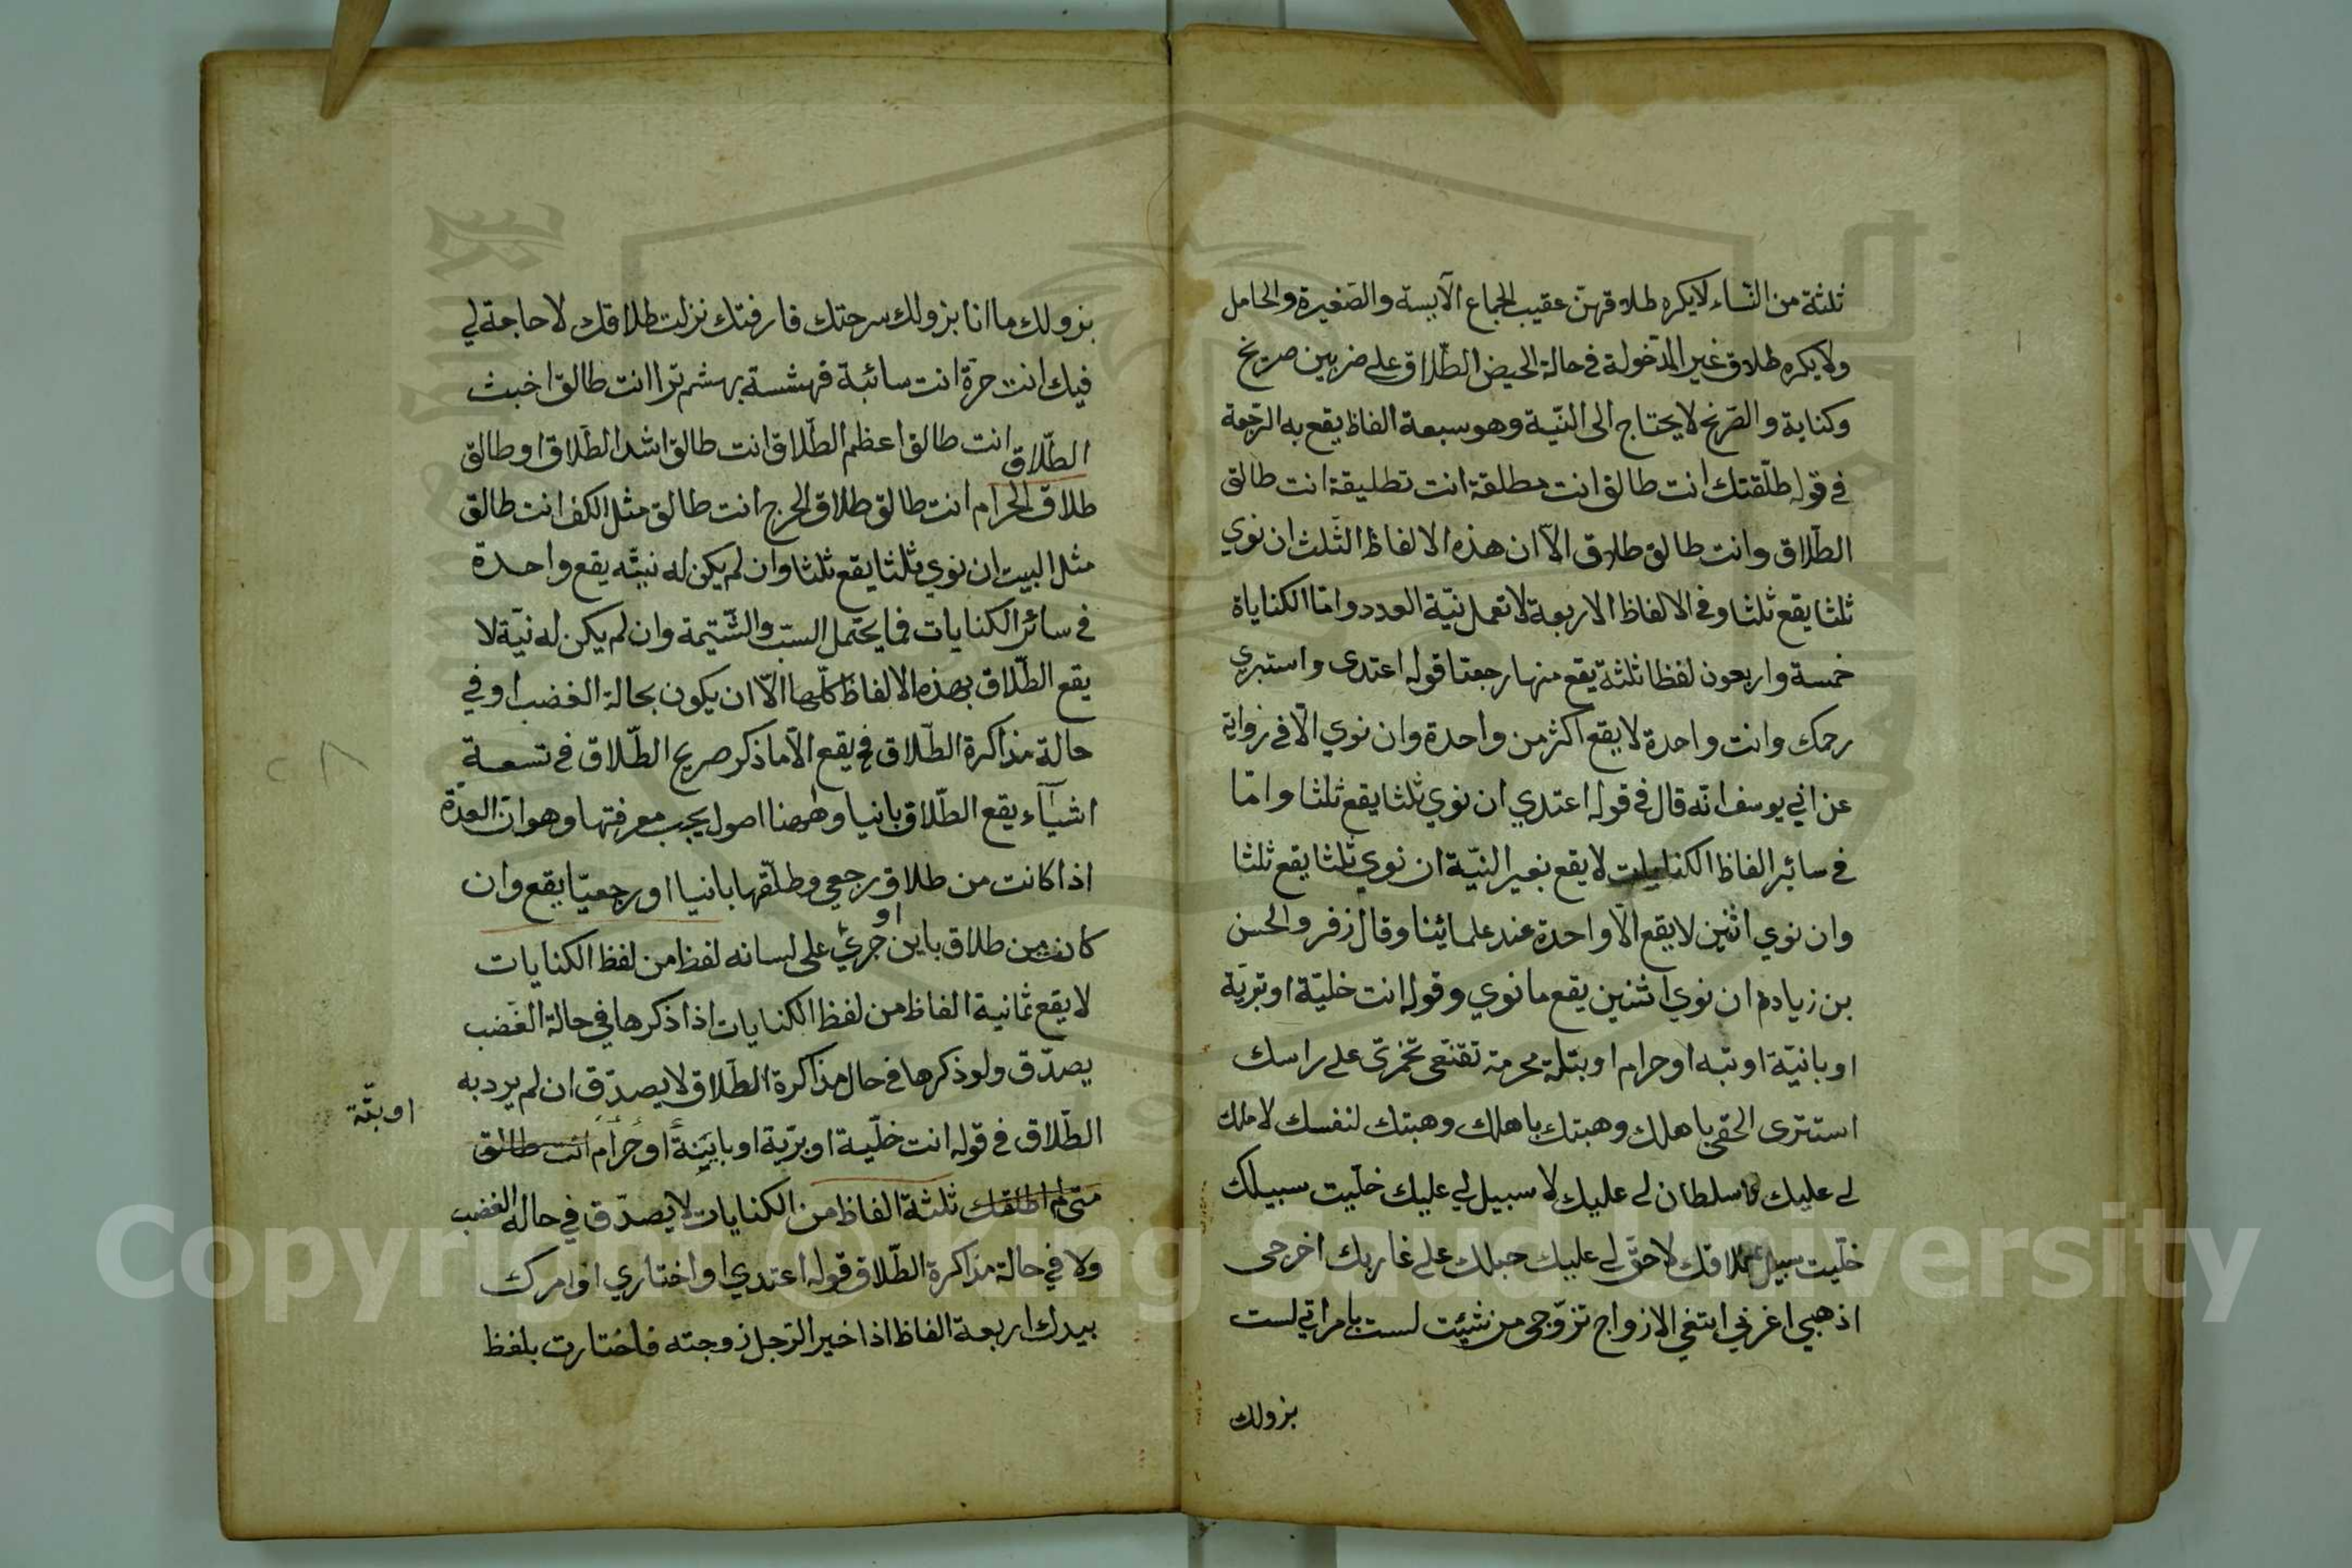 ثلثة من النّساء لا يكره طلاقهنّ عقيب الجماع الآيسة والصّغيرة والحامل
ولا يكره طلاق غير المدّخولة في حالة الحيض الطّلاق على ضربين صريح
وكناية والصّريح لا يحتاج الى النّيّة وهو سبعة الفاظ يقع به الرّجعة
في قوله طلّقتك انت طالق انت مطلقة انت تطليقة انت طالق
الطّلاق وانت طالق طلاق الاّ ان هذه الالفاظ الثّلث ان نوي
ثلثا يقع ثلثا وفي الالفاظ الاربعة لا تعمل نيّة العدد وامّا الكناياة
خمسة واربعون لفظا ثلثة يقع منها رجعتا قوله اعتدى واستبري
رحمك وانت واحدة لا يقع اكثر من واحدة وان نوي الاّ في رواية
عن ابي يوسف انّه قال في قوله اعتدي ان نوي ثلثا يقع ثلثا وامّا
في سائر الفاظ الكنايات لا يقع بغير النيّة ان نوي ثلثا يقع ثلثا
وان نوي اثنين لا يقع الاّ واحدة عند علمائنا وقال زفر والحسن
بن زيادم ان نوي اثنين يقع ما نوي وقوله انت خليّة او بريّة
او بانيّة او بتبه او حرام او بتلة محرمة تقنّعى تخمرّى على راسك
استترى الحقى باهلك وهبتك باهلك وهبتك لنفسك لا ملك
لى عليك لا سلطان لى عليك لا سبيل لي عليك خلّيت سبيلك
خلّيت سبيل طلاقك لا حقّ لى عليك حبلك على غاربك اخرجى
اذهبي اغربي ابتغي الازواج تزوّجى من شئت لست بامراتي لست
بزولك
بزولك ما انا بزولك سرحتك فارقتك نزلت طلاقك لا حاجة لي
فيك انت حرة انت سائبة بهشم ترا انت طالق اخبث
الطّلاق انت طالق اعظم الطّلاق انت طالق اشد الطّلاق او طالق
طلاق الحرام انت طالق طلاق الحرج انت طالق مثل الكف انت طالق
مثل البيت ان نوي ثلثا يقع ثلثا وان لم يكن له نيتّه يقع واحدة
في سائر الكنايات فما يحتمل السبّ والشّتيمة وان لم يكن له نيّة لا
يقع الطّلاق بهذه الالفاظ كلّها الاّ ان يكون بحالة الغضب او في
حالة مذاكرة الطّلاق فح يقع الاّ ما ذكر صريح الطّلاق في تسعة
اشيآء يقع الطّلاق بانيا وههنا اصول يجب معرفتها وهو ان العدّة
اذا كانت من طلاق رجعي وطلّقها بانيا او رجعيّا يقع وان
كانت من طلاق باين او جرئ على لسانه لفظ من لفظ الكنايات
لا يقع ثمانية الفاظ من لفظ الكنايات اذا ذكرها في حالة الغضب
يصدّق ولو ذكرها في حال مذاكرة الطّلاق لا يصدّق ان لم يرد به
الطّلاق في قوله انت خليّة او بريّة او باينة او حرام انت طالق
او بتّة
متى لم اطلقك ثلثة الفاظ من الكنايات لا يصدّق في حالة الغضب
ولا في حالة مذاكرة الطّلاق قوله اعتدي او اختاري او امرك
بيدك اربعة الفاظ اذا خير الرّجل زوجته فاختارت بلفظ
Copyright © King Saud University